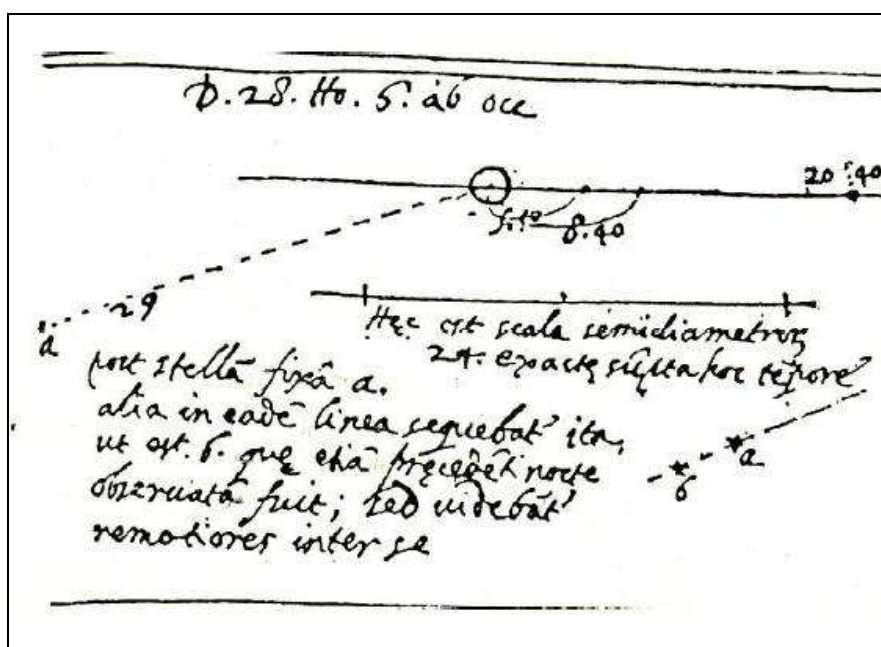 D. 28. Ho. 6. ab occ
20 : 40
5.10
8.40
29
a
Hęc est scala semidiametroꝝ
24. exactę sūpta hoc tēpore
post stellā fixā a.
alia in eadē linea sequebat' ita,
ut est. b. quę etiā pręcedēti nocte
obseruata fuit; sed uidebāt'
remotiores inter se
a
b